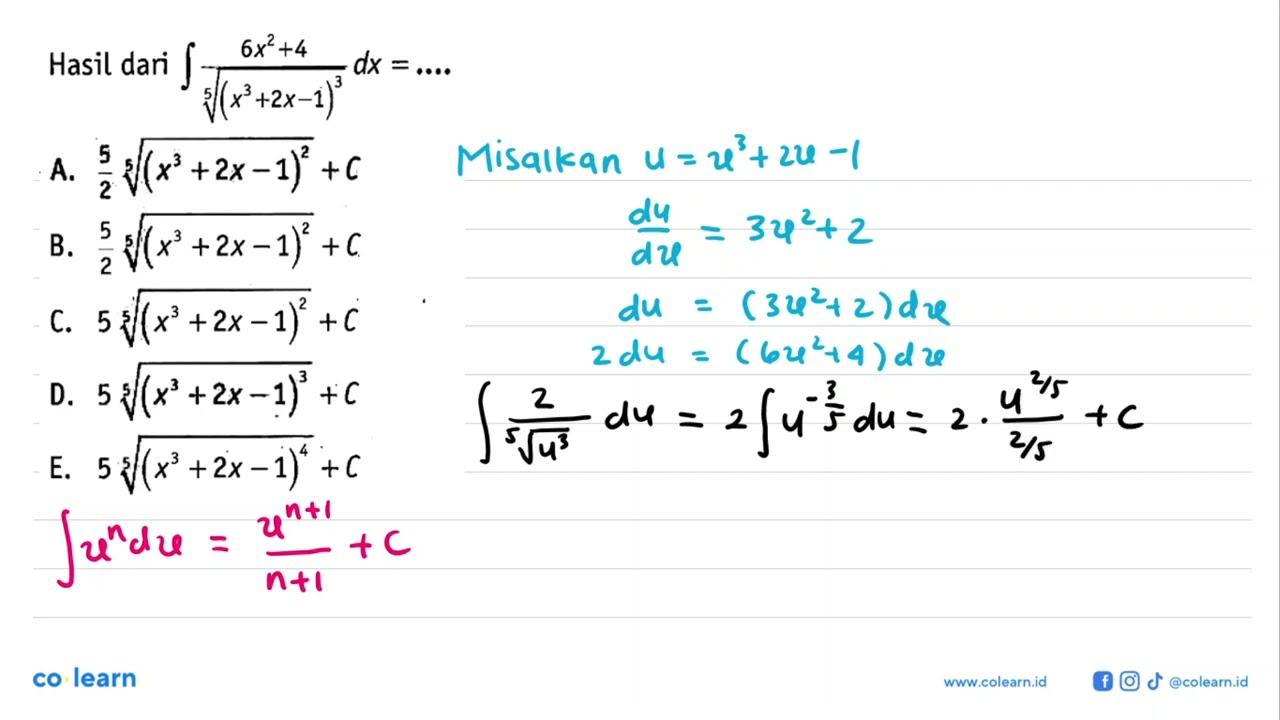 Hasil dari ∫ (6x²+4)/(⁵√(x³+2x−1)³) dx = ....
A. 5/2 ⁵√(x³ + 2x − 1)² + C
B. 5/2 ⁵√(x³ + 2x − 1)² + C
C. 5 ⁵√(x³ + 2x − 1)² + C
D. 5 ⁵√(x³ + 2x − 1)³ + C
E. 5 ⁵√(x³ + 2x − 1)⁴ + C
∫ xⁿ dx = xⁿ⁺¹/(n+1) + C
Misalkan u = x³ + 2x − 1
du/dx = 3x² + 2
du = (3x² + 2) dx
2 du = (6x² + 4) dx
∫ 2/(⁵√u³) du = 2 ∫ u^(-3/5) du = 2 · u^(2/5)/(2/5) + C
co learn
www.colearn.id
@colearn.id